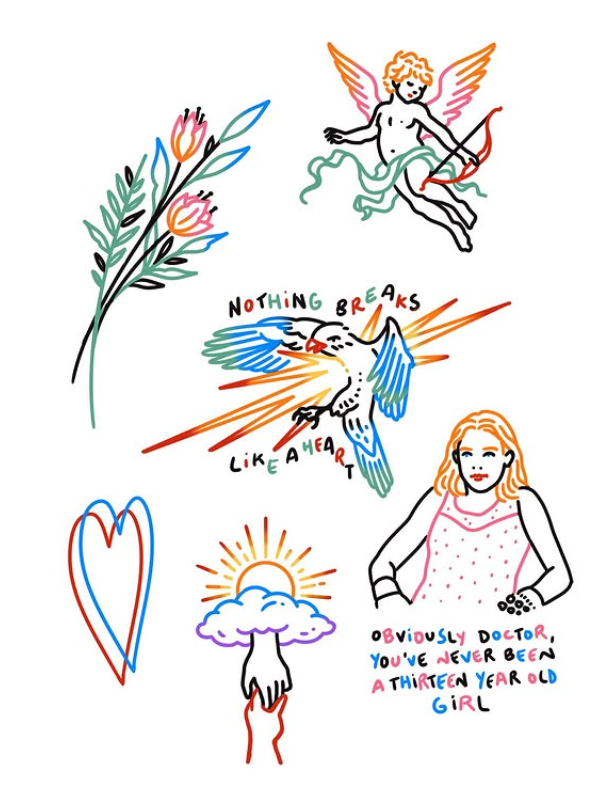 NOTHING BREAKS
LIKE A HEART
OBVIOUSLY DOCTOR,
YOU'VE NEVER BEEN
A THIRTEEN YEAR OLD
GIRL